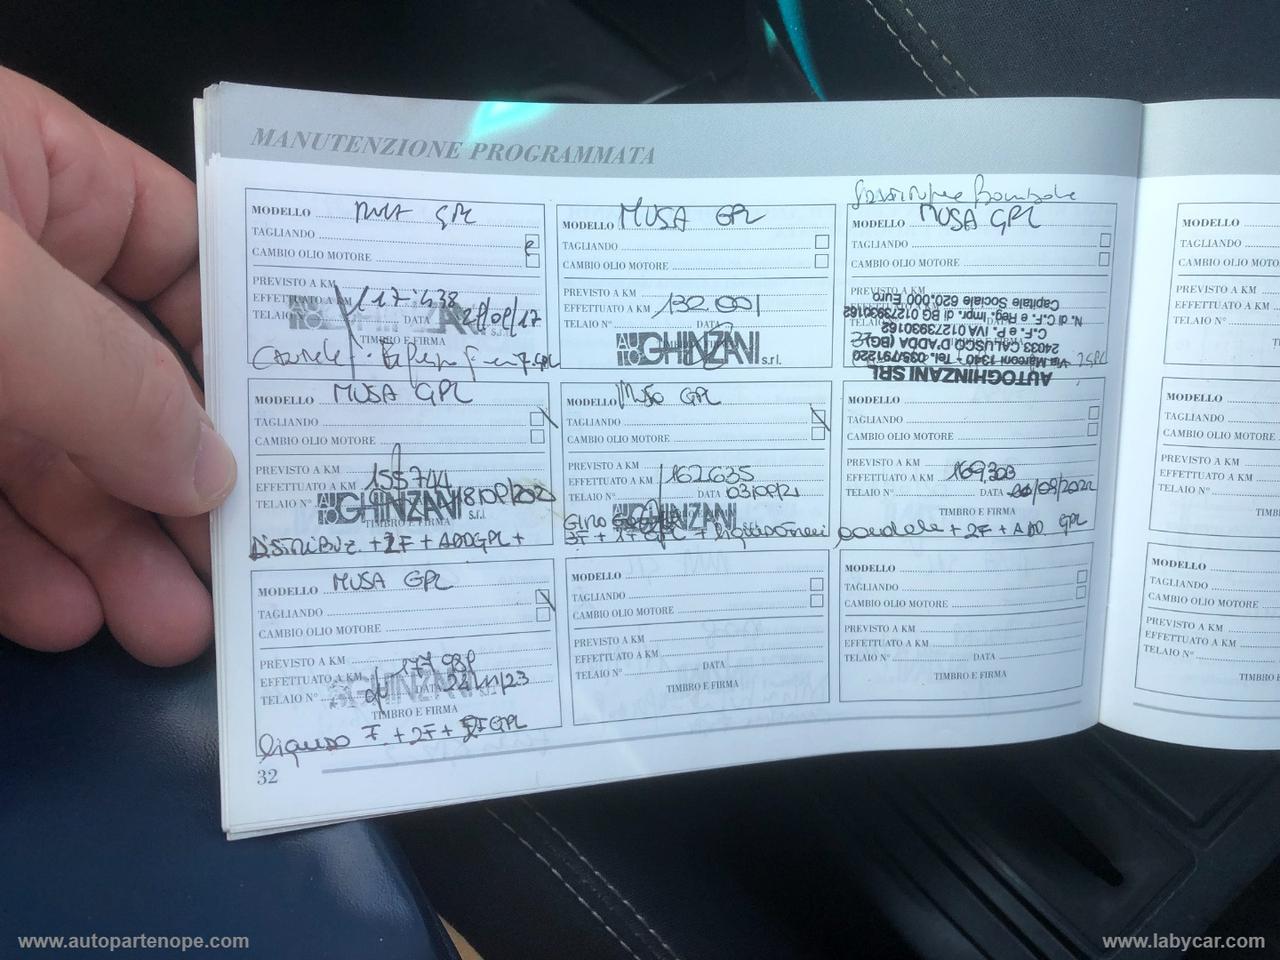 MANUTENZIONE PROGRAMMATA
MODELLO GPL
TAGLIANDO
CAMBIO OLIO MOTORE
PREVISTO A KM
EFFETTUATO A KM 117.438
TELAIO N° DATA
TIMBRO E FIRMA
MODELLO MUSA GPL
TAGLIANDO
CAMBIO OLIO MOTORE
PREVISTO A KM
EFFETTUATO A KM 132.001
TELAIO N° DATA
AUTOGHINZANI s.r.l.
Sostituzione Bombola
MODELLO MUSA GPL
TAGLIANDO
CAMBIO OLIO MOTORE
PREVISTO A KM
EFFETTUATO A KM
TELAIO N°
AUTOGHINZANI SRL
Via Marconi 1340 - Tel. 035/791220
24033 CALUSCO D'ADDA (BG)
C.F. e P. IVA 01273930162
N. di C.F. e Reg. Impr. di BG 01273930162
Capitale Sociale 620.000 Euro
MODELLO MUSA GPL
TAGLIANDO
CAMBIO OLIO MOTORE
PREVISTO A KM
EFFETTUATO A KM
TELAIO N°
AUTOGHINZANI s.r.l.
TIMBRO E FIRMA
DISTRIBUZ. +2F + ADD GPL +
MODELLO GPL
TAGLIANDO
CAMBIO OLIO MOTORE
PREVISTO A KM
EFFETTUATO A KM 162635
TELAIO N° DATA
AUTOGHINZANI
TIMBRO E FIRMA
MODELLO
TAGLIANDO
CAMBIO OLIO MOTORE
PREVISTO A KM
EFFETTUATO A KM 169303
TELAIO N° DATA
TIMBRO E FIRMA
candele + 2F + ADD GPL
MODELLO MUSA GPL
TAGLIANDO
CAMBIO OLIO MOTORE
PREVISTO A KM
EFFETTUATO A KM
TELAIO N° DATA
AUTOGHINZANI s.r.l.
TIMBRO E FIRMA
+ 2F + GPL
MODELLO
TAGLIANDO
CAMBIO OLIO MOTORE
PREVISTO A KM
EFFETTUATO A KM
TELAIO N° DATA
TIMBRO E FIRMA
MODELLO
TAGLIANDO
CAMBIO OLIO MOTORE
PREVISTO A KM
EFFETTUATO A KM
TELAIO N° DATA
TIMBRO E FIRMA
32
MODELLO
TAGLIANDO
CAMBIO OLIO MOTORE
PREVISTO A KM
EFFETTUATO A KM
TELAIO N°
MODELLO
TAGLIANDO
CAMBIO OLIO MOTORE
PREVISTO A KM
EFFETTUATO A KM
TELAIO N°
MODELLO
TAGLIANDO
CAMBIO OLIO MOTORE
PREVISTO A KM
EFFETTUATO A KM
TELAIO N°
www.autopartenope.com
www.labycar.com